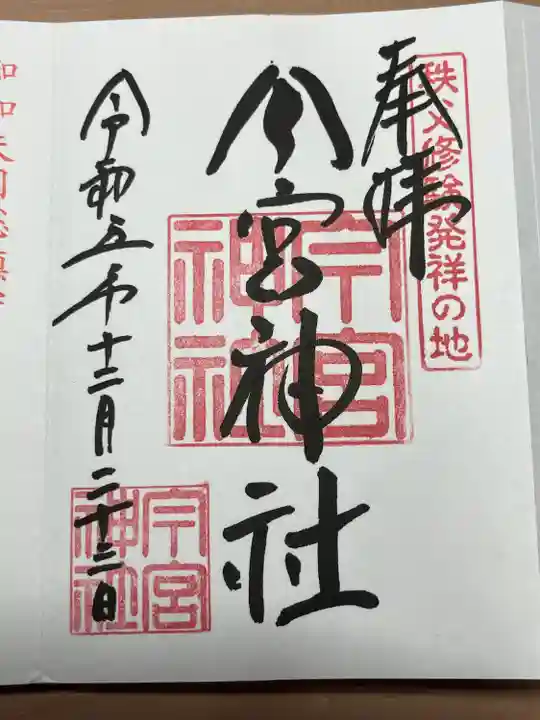 秩父修験発祥の地
奉拝
今宮神社
今宮神社
令和五年十二月二十三日
今宮神社